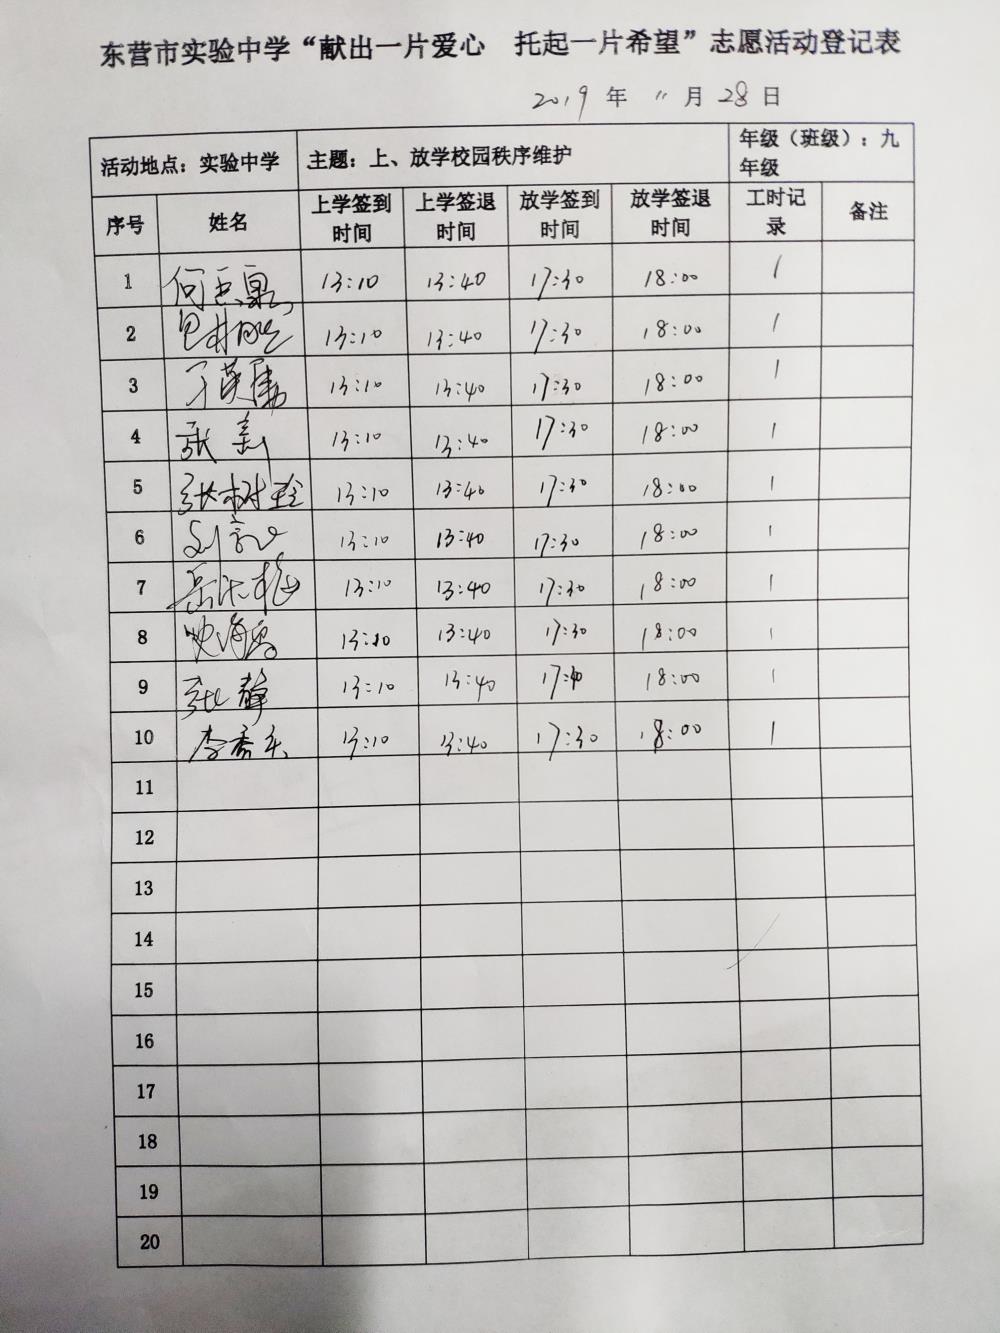 东营市实验中学“献出一片爱心 托起一片希望”志愿活动登记表
2019 年 11 月 28 日
活动地点：实验中学 主题：上、放学校园秩序维护 年级（班级）：九年级
序号 姓名 上学签到时间 上学签退时间 放学签到时间 放学签退时间 工时记录 备注
1 13:10 13:40 17:30 18:00 1
2 13:10 13:40 17:30 18:00 1
3 13:10 13:40 17:30 18:00 1
4 张新 13:10 13:40 17:30 18:00 1
5 张树玲 13:10 13:40 17:30 18:00 1
6 13:10 13:40 17:30 18:00 1
7 13:10 13:40 17:30 18:00 1
8 13:10 13:40 17:30 18:00 1
9 张静 13:10 13:40 18:00 1
10 13:10 13:40 17:30 18:00 1
11
12
13
14
15
16
17
18
19
20